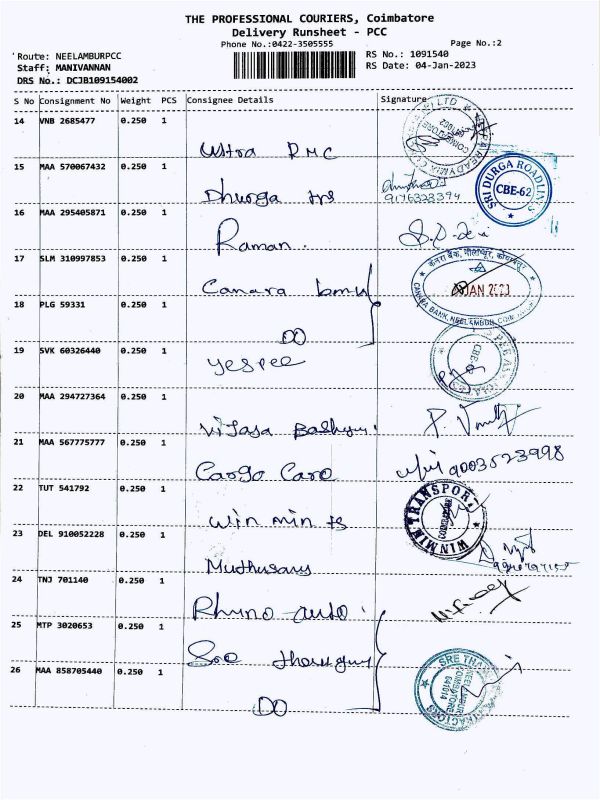 THE PROFESSIONAL COURIERS, Coimbatore
Delivery Runsheet - PCC
Phone No.:0422-3505555
Page No.:2
Route: NEELAMBURPCC
RS No.: 1091540
Staff: MANIVANNAN
RS Date: 04-Jan-2023
DRS No.: DCJB109154002
S No Consignment No Weight PCS Consignee Details Signature
14 VNB 2685477 0.250 1
Ultra RMC
15 MAA 570067432 0.250 1
Dhurga trs
9176323394
SRI DURGA ROADLINES
CBE-62
16 MAA 295405871 0.250 1
Raman
17 SLM 310997853 0.250 1
Canara
केनरा बैंक
JAN 2023
CANARA BANK, NEELAMBUR
18 PLG 59331 0.250 1
DO
19 SVK 60326440 0.250 1
yespee
CBE
20 MAA 294727364 0.250 1
21 MAA 567775777 0.250 1
Cargo Care
9003523998
22 TUT 541792 0.250 1
win min ts
WIN MIN TRANSPORT
23 DEL 910052228 0.250 1
Muthusamy
24 TNJ 701140 0.250 1
Rhyno auto
25 MTP 3020653 0.250 1
Sree
26 MAA 858705440 0.250 1
DO
SRE
NEELAMBUR
COIMBATORE